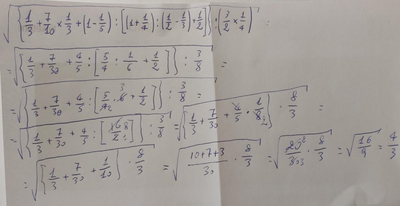 √{1/3 + 7/10 × 1/3 + (1 - 1/5) : [(1 + 1/4) : (1/2 - 1/3) + 1/2]} : (3/2 × 1/4) =
= √{1/3 + 7/30 + 4/5 : [5/4 : 1/6 + 1/2]} : 3/8 =
= √{1/3 + 7/30 + 4/5 : [5/4₂ · 6 + 1/2]} : 3/8 =
= √{1/3 + 7/30 + 4/5 : [16 8/2]} : 3/8 = √{1/3 + 7/30 + 4/5 · 1/8₂} · 8/3 =
= √{1/3 + 7/30 + 1/10} · 8/3 = √10+7+3/30 · 8/3 = √20²/30 3 · 8/3 = √16/9 = 4/3